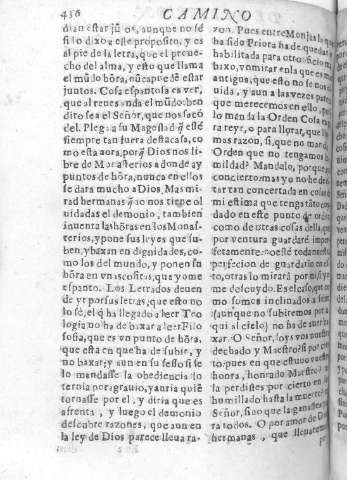 456 CAMINO
dian estar jũtos, aunque no sé
si lo dixo a este proposito, y es
al pie de la letra, que el proue-
cho del alma, y esto que llama
el mũdo hõra, nũca puedẽ estar
juntos. Cosa espantosa es ver,
que al reues anda el mũdo: ben
dito sea el Señor, que nos sacó
del. Plega a su Magestad q̃ esté
siempre tan fuera desta casa, co
mo esta aora, porq̃ Dios nos li-
bre de Monasterios adonde ay
puntos de hõra, nunca en ellos
se dara mucho a Dios. Mas mi-
rad hermanas q̃ no nos tiene ol
uidadas el demonio, tambien
inuenta las hõras en los Monas-
terios, y pone sus leyes que su-
ben, y baxan en dignidades, co-
mo los del mundo, y ponen su
hõra en vnas cositas, que yo me
espanto. Los Letrados deuen
de yr por sus letras, que esto no
lo sé, el q̃ ha llegado a leer Teo
logia no ha de baxar a leer Filo
sofia, que es vn punto de hõra,
que esta en que ha de subir, y
no baxar; y aun en su seso si se
lo mandasse la obediencia lo
ternia por agrauio, y auria quiẽ
tornasse por el, y diria que es
afrenta, y luego el demonio
descubre razones, que aun en
la ley de Dios parece lleua ra-
zon. Pues entre Monjas la que
ha sido Priora ha de quedar in-
habilitada para otro oficio mas
baxo, vn mirar en la que es mas
antigua, que esto no se nos ol
uida, y aun a las vezes parece
que merecemos en ello, porque
lo manda la Orden. Cosa es pa
ra reyr, o para llorar, que lleua
mas razon, si, que no manda la
Orden que no tengamos hu-
mildad? Mandalo, porque aya
concierto, mas yo no he de es-
tar tan concertada en cosas de
mi estima que tenga tanto cuy
dado en este punto de orden,
como de otras cosas della, que
por ventura guardaré imper-
fetamente: no esté toda nuestra
perfecion de guardarla en es-
to, otras lo mirarã por mi si yo
me descuydo. Es el caso, que co
mo somos inclinados a subir
(aunque no subiremos por a-
qui al cielo) no ha de auer ba
xar. O Señor, soys vos nuestro
dechado y Maestro? Si por cier
to, pues en que estuuo vuestra
honra, honrado Maestro? No
la perdistes por cierto en ser
humillado hasta la muerte: no
Señor, sino que la ganastes pa
ra todos. O por amor de Dios
hermanas, que lleuaremos